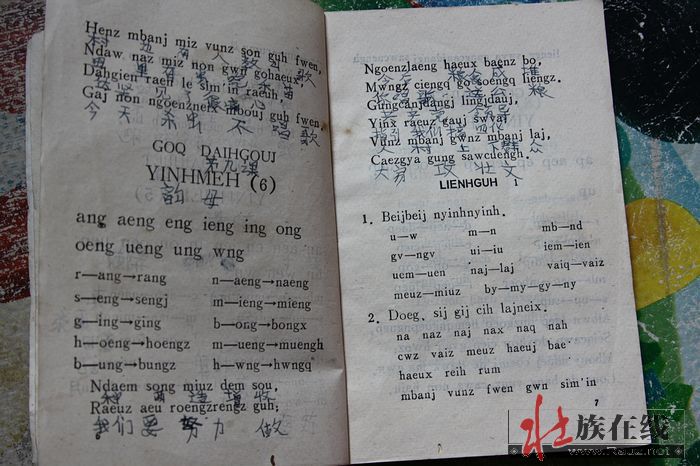 Henz mbanj miz vunz son guh fwen,
村 边 有 人 教 山 歌
Ndaw naz miz non gwn gohaeux,
Dahgien raen le sim'in raeih,
Gaj non ngoenzneix mbouj guh fwen.
今天 杀虫 不 唱歌
GOQ DAIHGOUJ
第九课
YINHMEH (6)
韵 母
ang aeng eng ieng ing ong
oeng ueng ung wng
r—ang→rang n—aeng→naeng
s—eng→sengj m—ieng→mieng
g—ing→ging b—ong→bongx
h—oeng→hoengz m—ueng→muengh
b—ung→bungz h—wng→hwngq
Ndaem song miuz dem sou,
种 两 造 增 收
Raeuz aeu roengzrengz guh;
我们要 努力 做
Ngoenzlaeng haeux baenz bo,
Mwngz ciengq go soengq liengz.
Gungcanjdangj lingjdauj,
共产党 领导
Yinx raeuz gauj swyaj
Vunz mbanj gwnz mbanj laj,
Caezgya gung sawcuengh.
大家 攻 壮文
LIENHGUH 1
1. Beijbeij nyinhnyinh.
u—w m—n mb—nd
gv—ngv ui—iu iem—ien
uem—uen naj—laj vaiq—vaiz
meuz—miuz by—my—gy—ny
2. Doeg, sij gij cih lajneix.
na naz naj nax naq nah
cwz vaiz meuz haeuj bae
haeux reih rum
mbanj vunz fwen gwn sim'in
7
壮族在线
www.Rauz.net